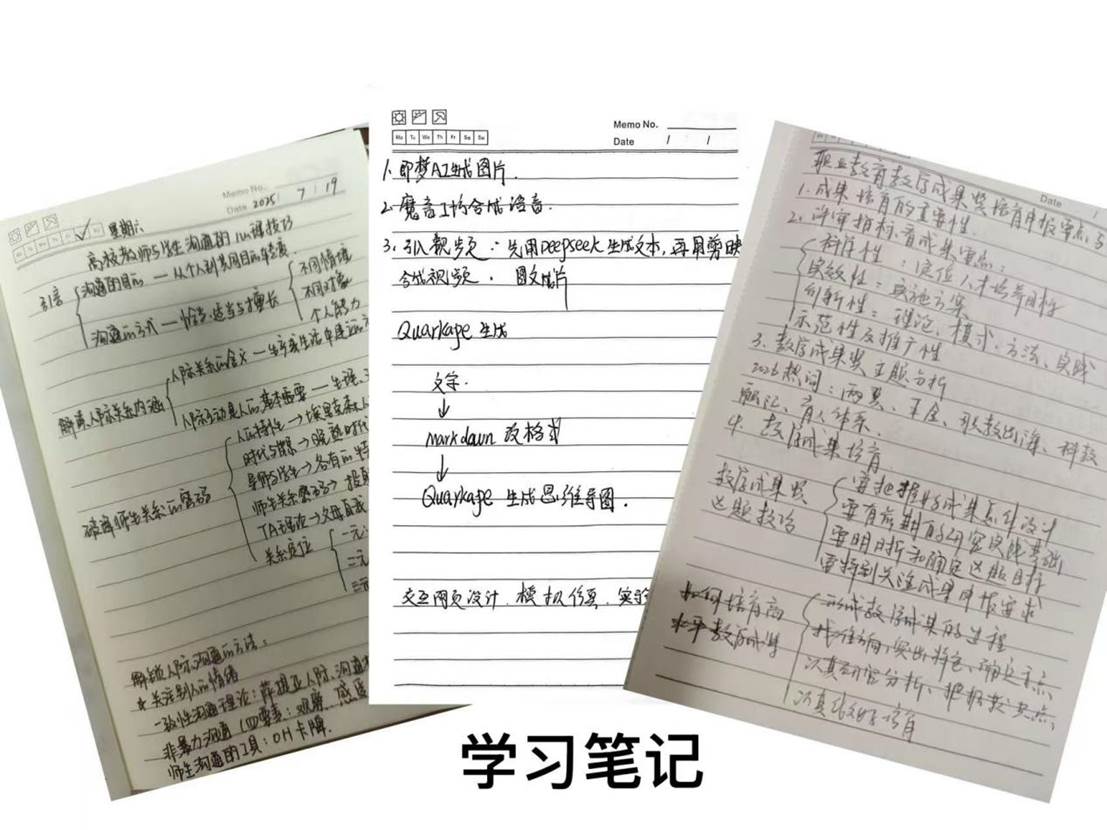 Memo No.
Date 2025 / 7 / 19
星期六
高校教师与学生沟通的 技巧
引言
沟通的目的 — 从个人到共同目的
沟通的方式 — 恰当·适当与擅长
不同情境
不同对象
个人能力
解读人际关系内涵
人际关系的含义 — 生产或生活中建立的
人际互动是人的基本需要 —
破译师生关系的密码
师生关系密码 → 投射
TA理论 → 父母
关系定位
一元
二元
三元
解锁人际沟通的方法:
★ 关注别人的情绪
一致性沟通理论: 萨提亚 人际、沟通
非暴力沟通 (四要素: 观察、感受
师生沟通的工具: OH卡牌.
Mo Tu We Th Fr Sa Su
Memo No.
Date / /
1. 即梦AI生成图片.
2. 魔音工坊合成语音.
3. 引入视频: 先用Deepseek生成文本,再用剪映
合成视频. 图文成片
Quarkape 生成
文字.
↓
markdown 改格式
↓
Quarkape 生成思维导图.
交互网页设计. 模拟仿真. 实验
Date /
职业教育教学成果奖培育申报要点与
1. 成果培育的重要性.
2. 评审指标看成果重点:
科学性: 定位人才培养目标
实效性: 实施方案
创新性: 理论、模式、方法、实践
示范性及推广性
3. 教学成果奖主题分析
2026热词: 两翼、五金、职教出海、科教
融汇、育人体系.
4. 教学成果培育
教学成果奖
选题技巧
要把握好成果总体设计
要有前期的研究实践基础
要明晰和确定选题目标
要特别关注成果申报要求
如何培育高
水平教学成果
形成教学成果的过程
找准方向,突出特色、确定主点
认真研究分析、把握要点
认真
学习笔记